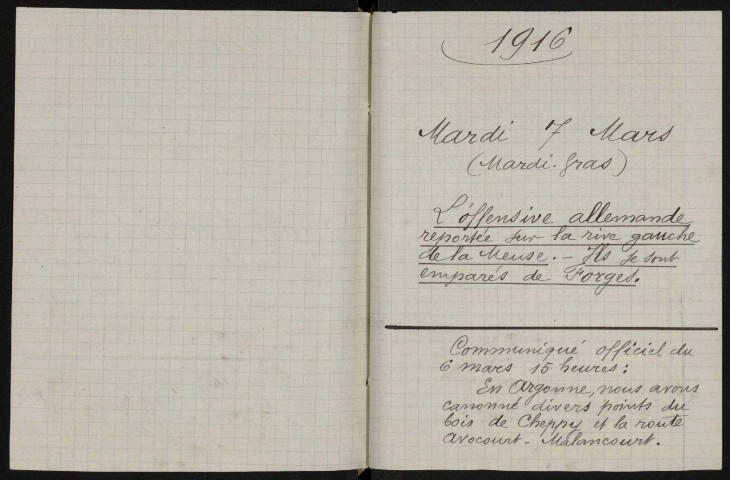 1916
Mardi 7 Mars
(Mardi-Gras)
L'offensive allemande
reportée sur la rive gauche
de la Meuse. - Ils se sont
emparés de Forges.
Communiqué officiel du
6 mars 15 heures :
En Argonne, nous avons
canonné divers points du
bois de Cheppy et la route
Avocourt - Malancourt.